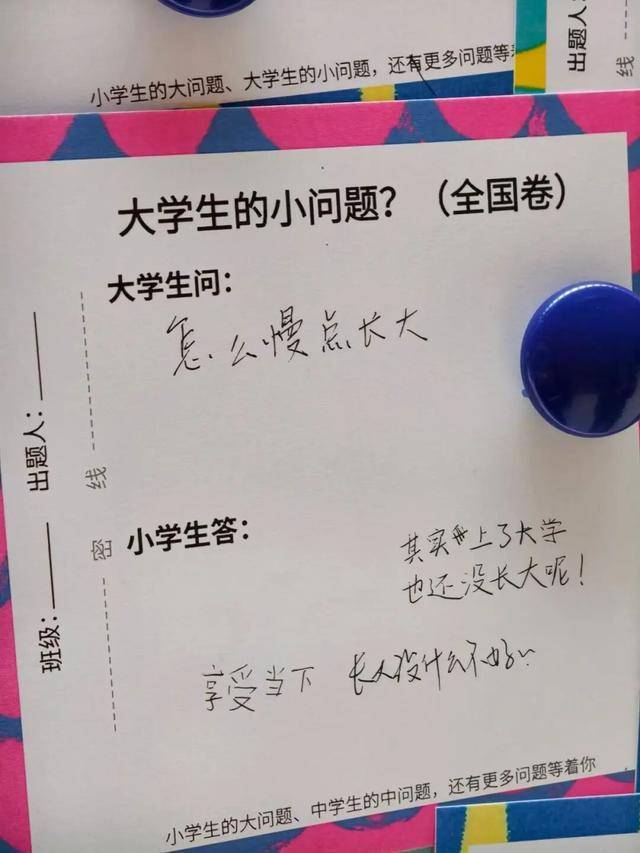 小学生的大问题、大学生的小问题，还有更多问题等着
出题人：
线
大学生的小问题？（全国卷）
大学生问：
怎么慢点长大
小学生答：
其实上了大学
也还没长大呢！
享受当下 长大没什么不好
班级： 出题人：
密 线
小学生的大问题、中学生的中问题，还有更多问题等着你